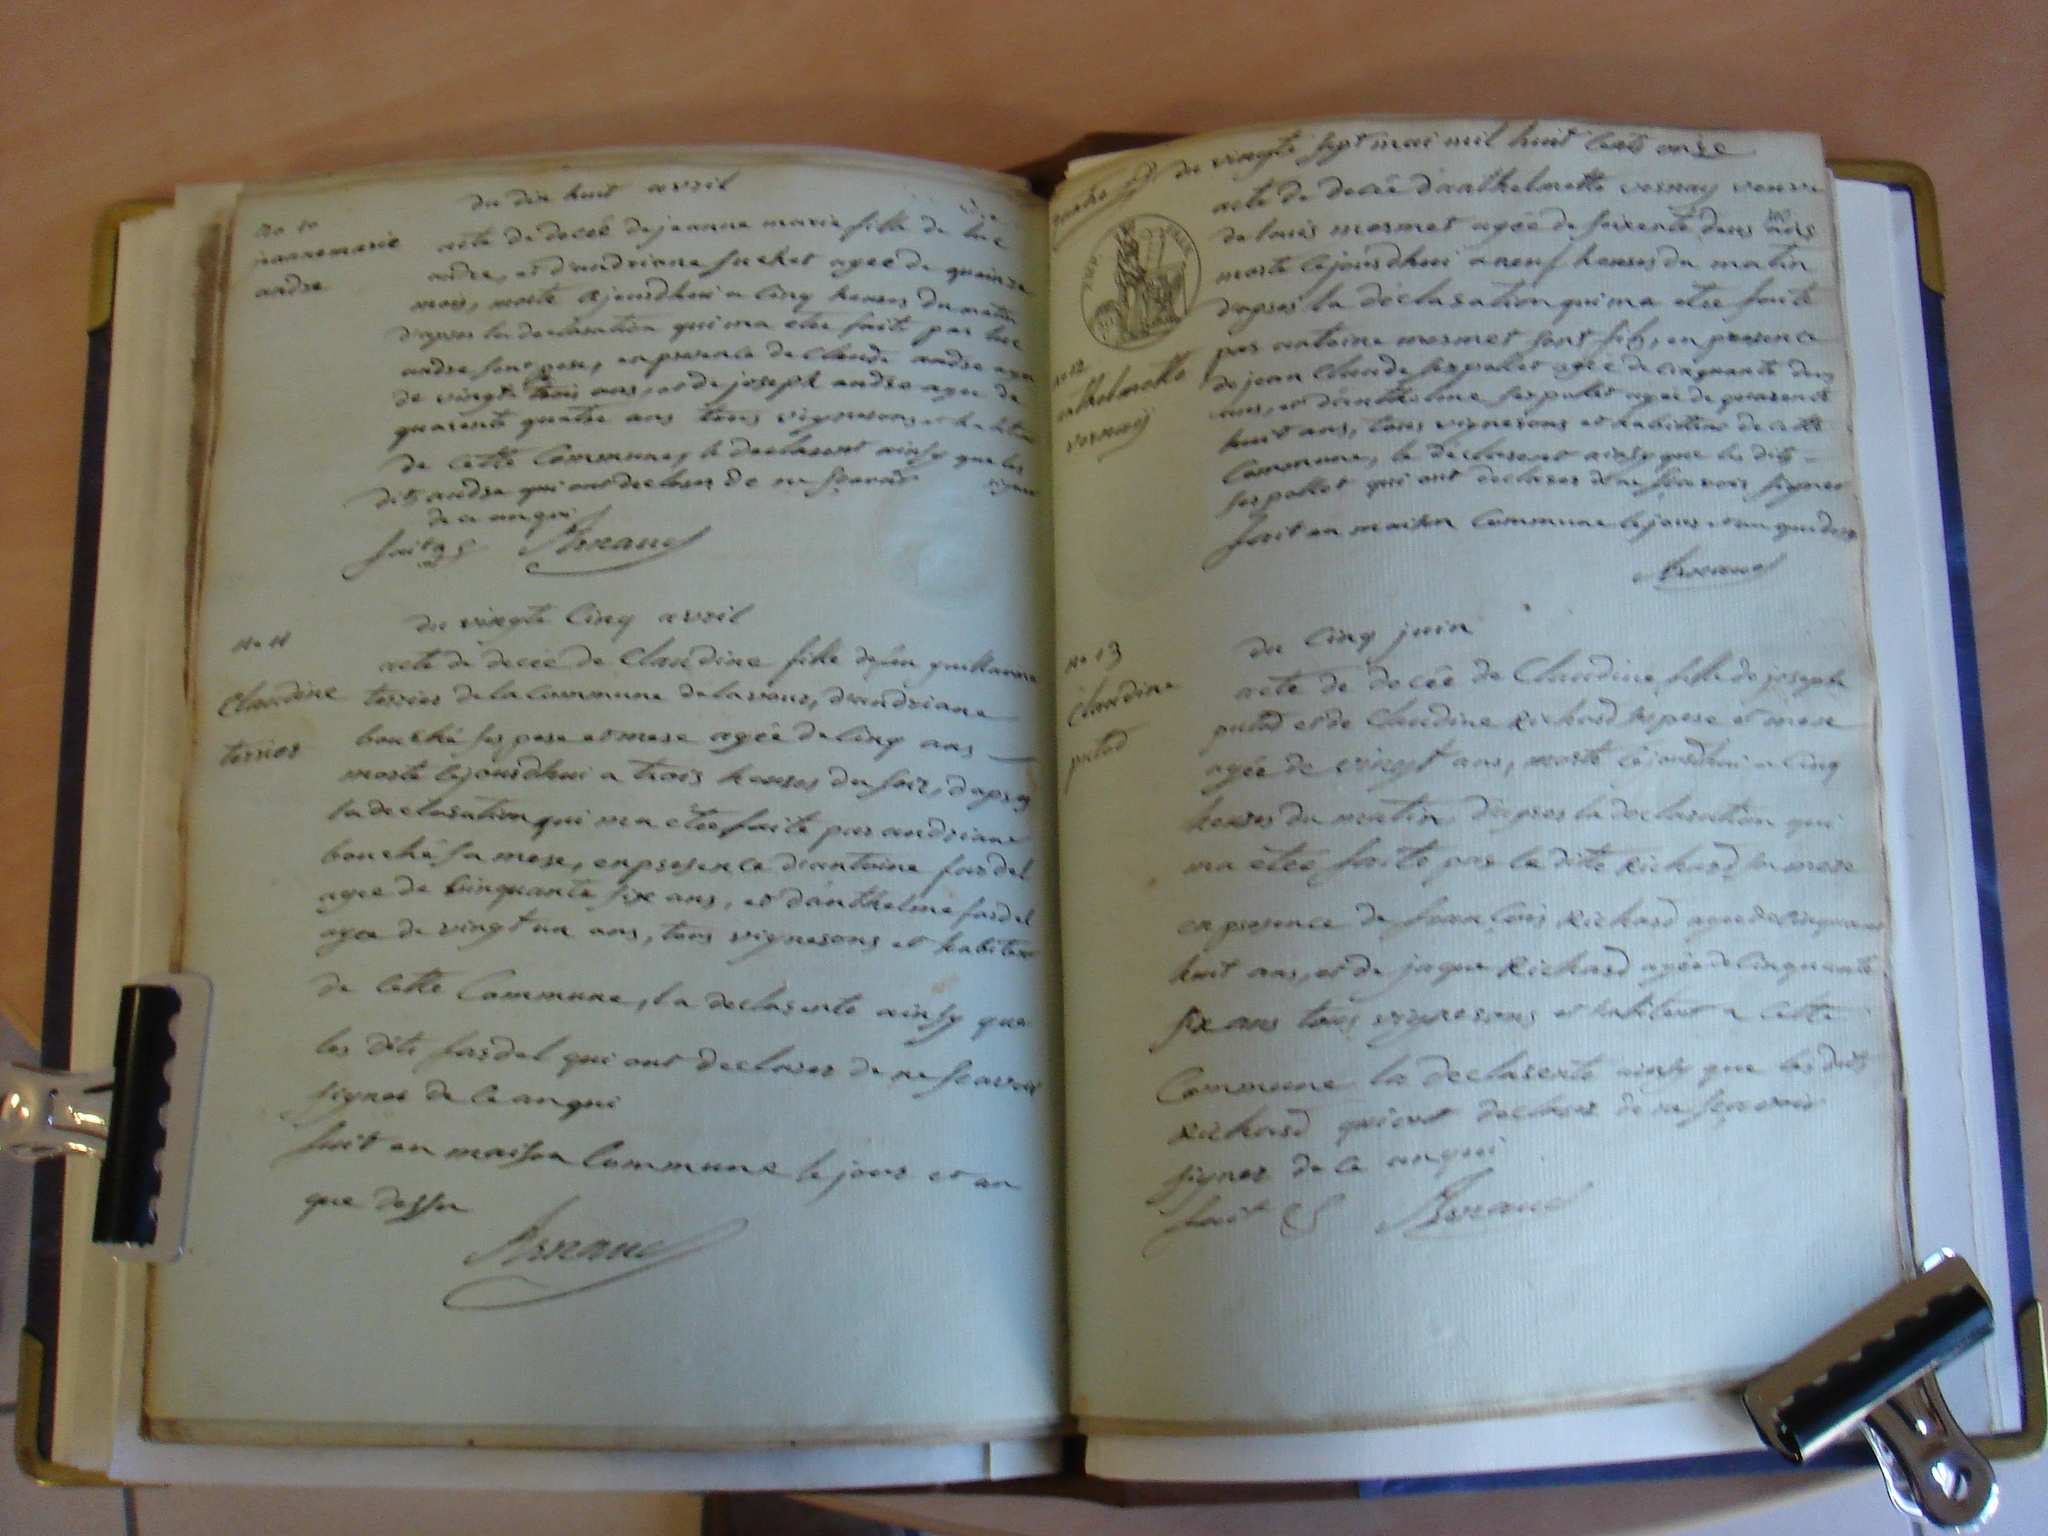 du dix huit avril
no 10
jeannemarie
andre
acte de decée de jeanne marie fille de luc
andre, et d'andriane suchet agée de quinze
mois, morte cejourdhui a cinq heures du matin
d'apres la declaration qui ma etee fait par luc
andre sont pere, en presence de Claude andre age
de vingt trois ans, et de joseph andre agee de
quarente quatre ans tous vignerons et habitant
de cette Commune, le declarent ainsy que les
dits andre qui ont declarer de ne sçavoir signer
de ce anqui
fait &c Arnaud
du vingte Cinq avril
no 11
Claudine
terrier
acte de decée de Claudine fille de feu guillaume
terrier de la Commune de lavour, d'andriane
bouché ses pere et mere agée de Cinq ans
morte Cejourdhui a trois heures du soir, d'apres
la declaration qui ma étee faite par andriane
bouché sa mere, en presence d'antoine fardel
agee de Cinquante six ans, et d'anthelme fardel
agee de vingt un ans, tous vignerons et habitent
de Cette Commune, la declarente ainsy que
les dits fardel qui ont declarer de ne sçavoir
signer de Ce anqui
fait en maison Commune le jour et an
que dessu
Arnaud
du vingte sept mai mil huit Cents onze
EMP. FRAN.
no 12
anthelmette
vernay
acte de decée d'anthelmette vernay veuve
de louis mermet agée de soixente deux ans
morte Cejourdhui a neuf heures du matin
d'apres la déclaration qui ma etee faite
par antoine mermet sont fils, en presence
de jean Claude serpollet agée de Cinquante deux
ans, et d'anthelme serpollet agée de quarente
huit ans, tous vignerons et habitens de cette
Commune, le declarent ainsy que les dits
serpollet qui ont declarer de ne sçavoir signer
fait en maison Commune le jour et an que dessu
Arnaud
du Cinq juin
no 13
Claudine
putod
acte de decée de Claudine fille de joseph
putod et de Claudine Richard ses pere et mere
agée de vingt ans, morte Cejourdhui a Cinq
heures du matin, d'apres la declaration qui
ma étée faite par la dite Richard sa mere
en presence de françois Richard agee de Cinquante
huit ans, et de jaque Richard agée de Cinquante
six ans tous vignerons et habitent a Cette
Commune la declarente ainsy que les dits
Richard qui ont declarer de ne sçavoir
signer de Ce anqui
fait &c Arnaud